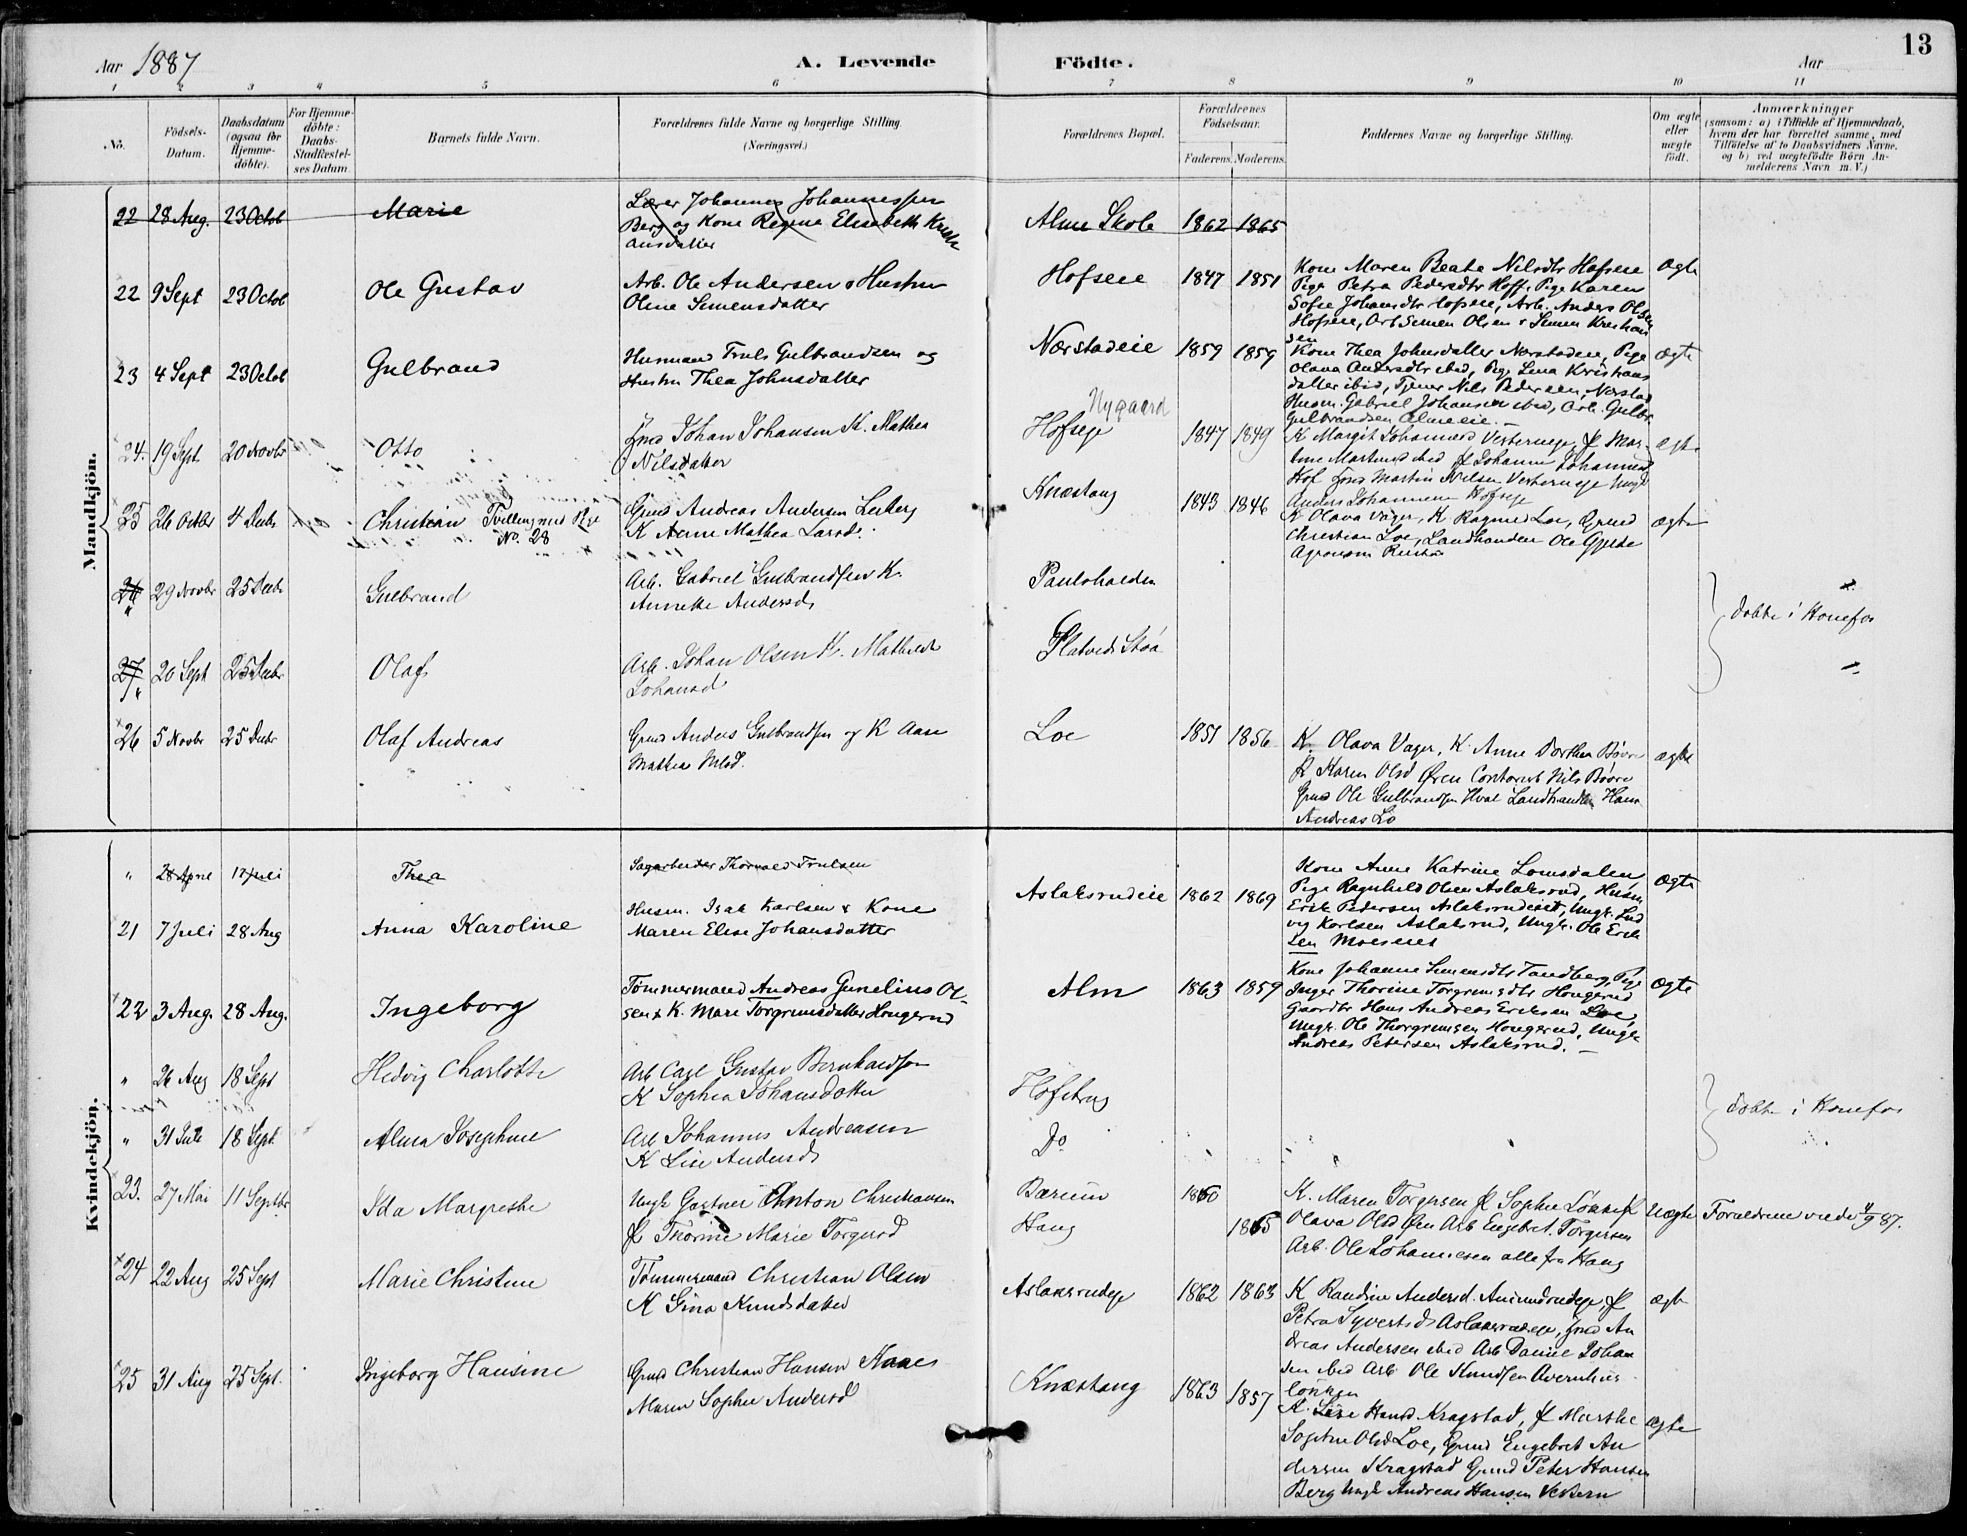 Aar 1887
A. Levende Födte.
Aar
13
1 2 3 4 5 6 7 8 9 10 11
No.
Födsels-Datum.
Daabsdatum (ogsaa for Hjemme-döbte).
For Hjemme-döbte: Daabs-Stadfæstel-ses Datum.
Barnets fulde Navn.
Forældrenes fulde Navne og borgerlige Stilling.
(Næringsvei.)
Forældrenes Bopæl.
Forældrenes Födselsaar.
Faderens. Moderens.
Faddernes Navne og borgerlige Stilling.
Om ægte eller uægte födt.
Anmærkninger
(saasom: a) i Tilfælde af Hjemmedaab,
hvem der har forrettet samme, med
Tilföielse af to Daabsvidners Navne.
og b) ved uægtefödte Börn An-
melderens Navn m. V.)
Mandkjön.
22 28 Aug. 23 Octob Marie
Lærer Johannes Johannessen
Berg og Kone Regine Elisabeth Kristi
ansdatter
Alm Skole 1862 1865
22 9 Sept 23 Octob Ole Gustav
Arb. Ole Andersen & Hustru
Oline Simensdatter
Hofseie 1847 1851
Kone Maren Beate Nilsdtr Hofseie
Pige Petra Pedersdtr Hoff, Pige Karen
Sofie Johansdtr Hofseie, Arb. Anders Olsen
Hofseie, Arb Simen Olsen & Simen Kristian
sen
Ægte
23 4 Sept 23 Octob Gulbrand
Husmand Truls Gulbrandsen og
Hustru Thea Johnsdatter
Nærstadeie 1859 1859
Kone Thea Johnsdatter Nærstadeie, Pige
Olava Andersdtr ibid, Pige Lina Kristians
datter ibid, Tjener Nils Pedersen, Nærstad
Husm. Gabriel Johansen ibid, Arb. Gulbr.
Gulbrandsen Almeie. –
Ægte
24. 19 Sept. 20 Novbr Otto
Johan Johansen K. Mathea
Nilsdatter
Nygaard
Hofseje 1847 1849
K Margit Johannesd Vesterneje, P Mar-
Martinsd ibid P Johanne Johannesd
Hof Martin Nilsen Vesterneje Ungk
Anders Johannesen Hofseje
ægte
25 26 Octbr 4 Decbr Christian Tvilling med Pige
No. 28
Gmd Andreas Andersen Lerberg
K Anne Mathea Larsd.
Knæstang 1843 1846
K Olava Vager, K Ragned Loe, Gmd
Christian Loe, Landhandler Ole Gjelde
Agronom
ægte
26 " 29 Novbr 25 Decbr Gulbrand
Arb. Gabriel Gulbrandsen K.
Annette Andersd.
Paulshaugen
döbte i Hönefos
27 " 20 Sept 25 Decbr Olaf
Arb. Johan Olsen K. Mathilde
Johansd
Støa
26 5 Novbr 25 Decbr Olaf Andreas
Gmd Anders Gulbrandsen og K Aase
Mathea Nilsd.
Loe 1851 1856
K. Olava Vager, K. Anne Dorthea Bøvre
P Karen Olsd Øren Contorist Nils Bøvre
Gmd Ole Gulbrandsen Hval Landhandler Hans
Andreas Lo
ægte
Kvindekjön.
" 28 April 17 Juli Thea
Sagarbeider Thorvald Trulsen
21 7 Juli 28 Aug Anna Karoline
Husm. Isak Karlsen & Kone
Maren Elise Johansdatter
Aslaksrudeie 1862 1869
Kone Anne Katrine Lomsdalen
Pige Ragnhild Olsen Aslaksrud, Husm.
Erik Pedersen Aslaksrudeiet, Ungk. Lud
vig Karlsen Aslaksrud, Ungk. Ole Erik
sen Moesenes
Ægte
22 3 Aug. 28 Aug. Ingeborg
Tømmermand Andreas Gunelius Ol-
sen & K. Mari Torgrimsdatter Hougerud
Alm 1863 1859
Kone Johanne Simensdtr Tandberg, Pige
Inger Thorine Torgrimsdtr Hougerud
Gaardbr Hans Andreas Eriksen Loe,
Ungk. Ole Thorgrimsen Hougerud, Ungk
Andreas Petersen Aslaksrud. –
Ægte
" 26 Aug 18 Sept Hedvig Charlotte
Arb Carl Gustav Bernhardsen
K Sophia Johansdatter
Hofstrug
döbte i Hönefos
" 31 Juli 18 Sept. Alma Josephine
Arb Johannes Andreasen
K Lise Andersd
Do
23. 27 Mai 11 Septbr Ida Margrethe
Ungk Gartner Anton Christiansen
P Thorine Marie Torgersd
Bærum 1860
Haug 1865
K. Maren Torgersen P Sophie Løkke P
Olava Olsd Øen Arb Engebret Torgersen
Arb. Ole Johannesen alle fra Haug
Uægte
Forældrene viede 4/9 87.
24 22 Aug 25 Sept Marie Christine
Tømmermand Christian Olsen
K Gina Knudsdatter
Aslaksrudeje 1862 1863
K Randine Andersd. Amundrudeje, P
Petra Syvertsd Aslaksrudeje, Gmd An
dreas Andersen ibid Arb Daniel Johan
sen ibid Arb Ole Knudsen Avernhus
løkken
ægte
25 31 Aug 25 Sept. Ingeborg Hansine
Gmd Christian Hansen K
Maren Sophie Andersd
Knæstang 1863 1857
K. Lise Hansd Kragstad, P Marthe
Sophie Olsd Loe, Gmd Engebret An
dersen Kragstad Gmd Peter Hansen
Berg Ungk Andreas Hansen Vestern
Ægte